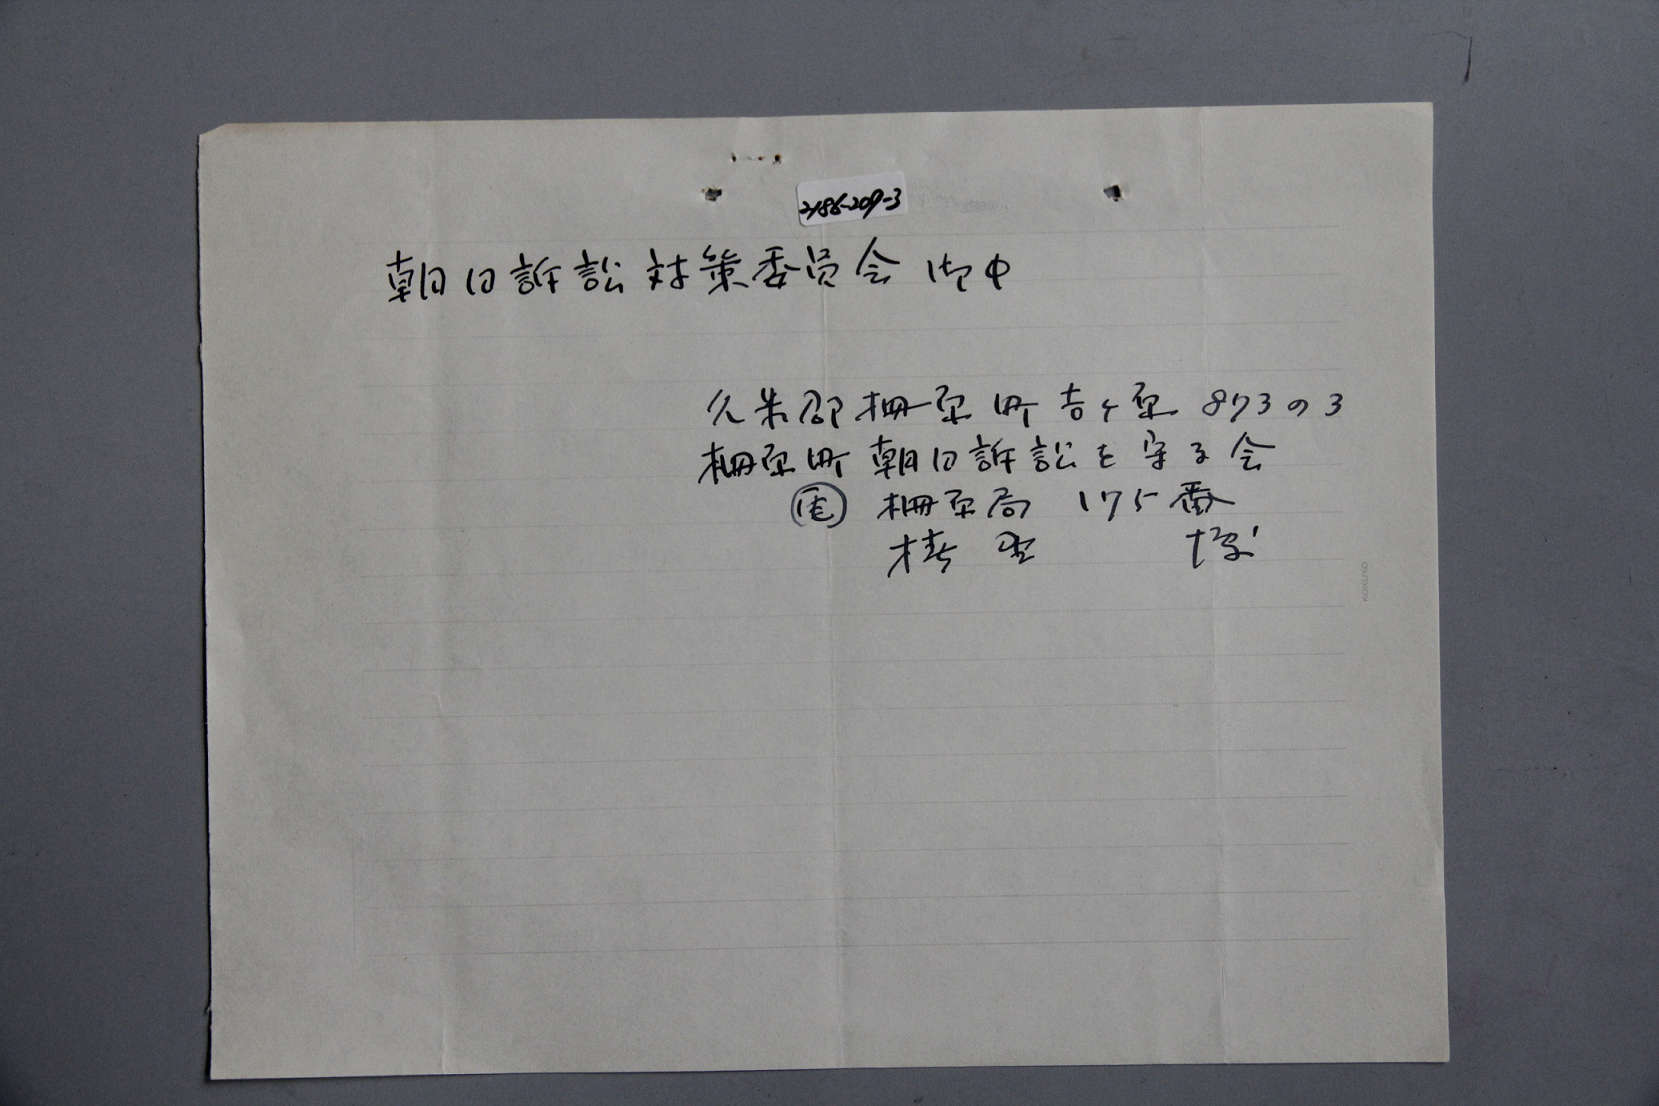 2186-209-3
朝日訴訟対策委員会 御中
久米郡柵原町吉ヶ原 873の3
柵原町朝日訴訟を守る会
柵原局 175番